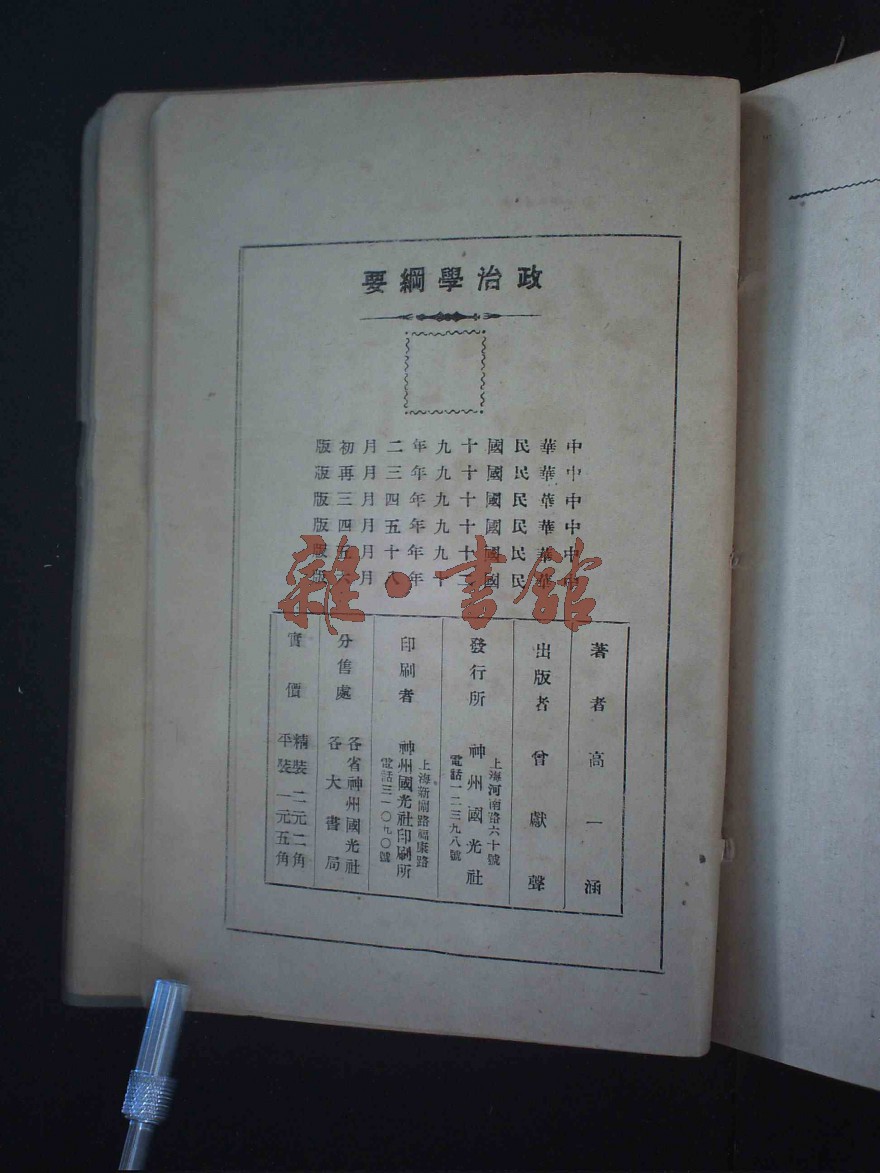 政治學綱要
中華民國十九年二月初版
中華民國十九年三月再版
中華民國十九年四月三版
中華民國十九年五月四版
中華民國十九年十月五版
中華民國二十年八月六版
雜·書館
著者 高一涵
出版者 曾獻聲
發行所 神州國光社
上海河南路六十號
電話一二三九八號
印刷者 神州國光社印刷所
上海新閘路福康路
電話三一〇九〇號
分售處 各省神州國光社
各大書局
實價 精裝二元二角
平裝一元五角